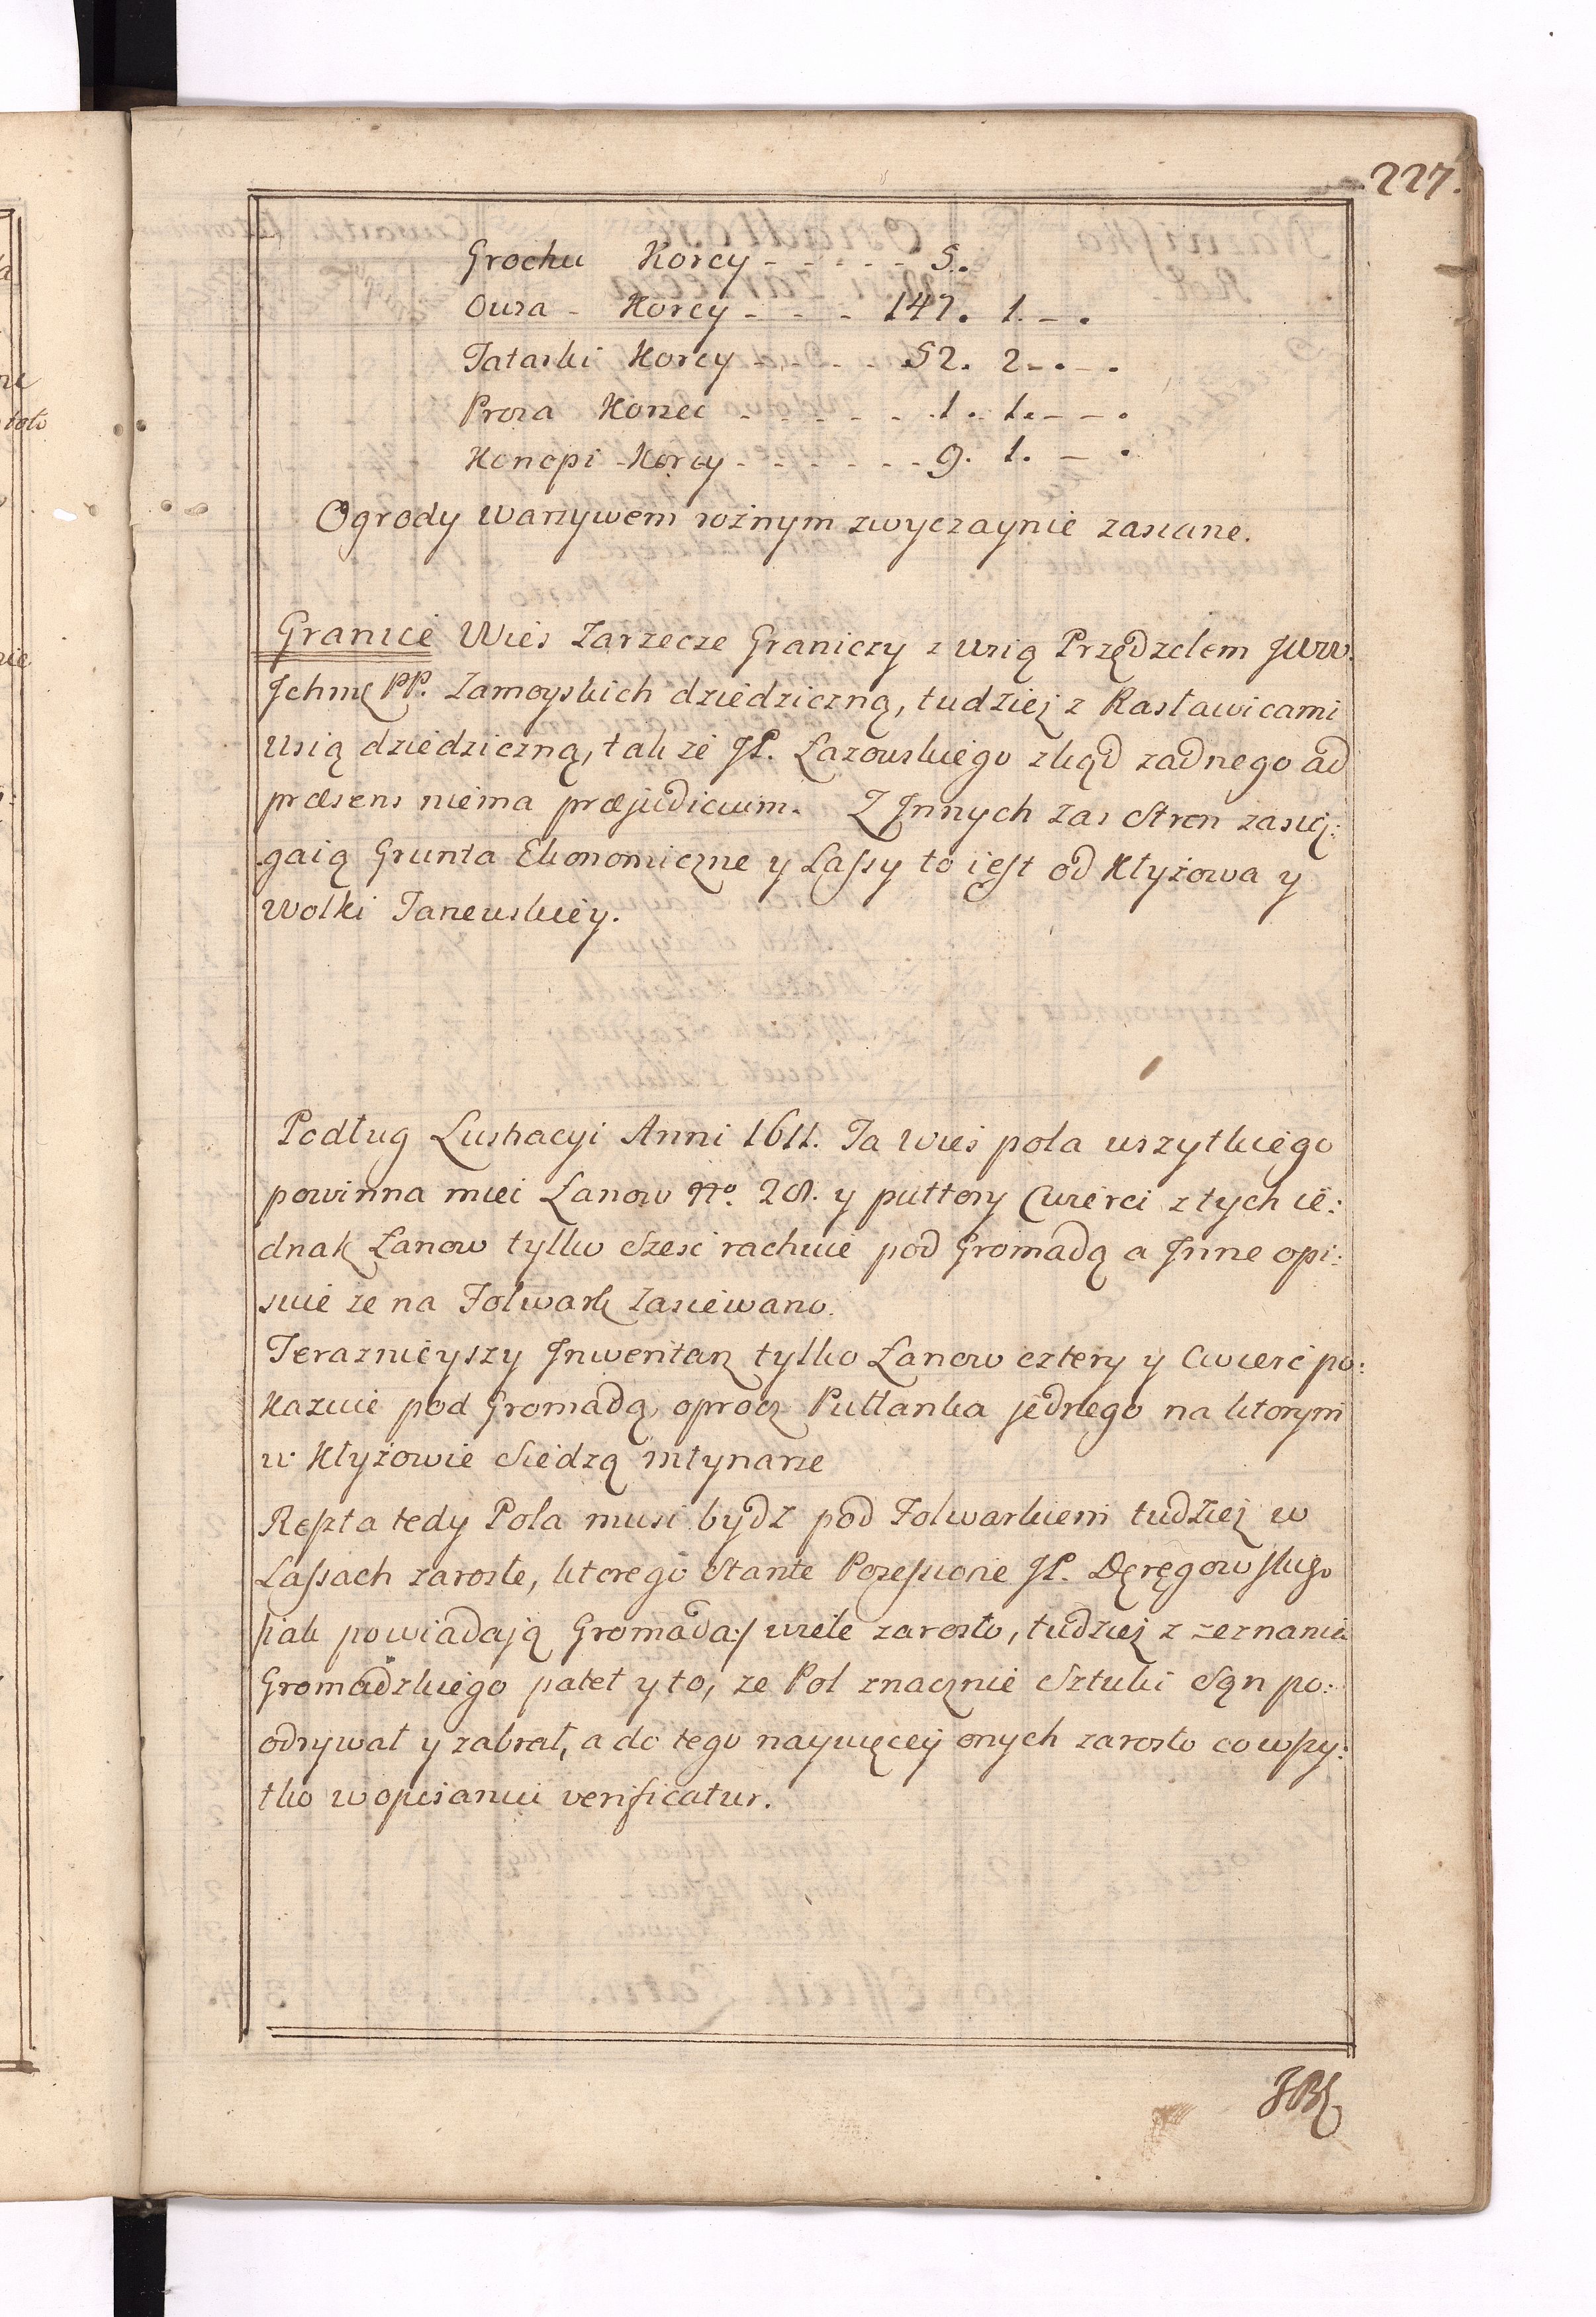 227.
Grochu Korcy - - - - - 5.
Owsa - Korcy - - - - 147. 1. - .
Tatarki Korcy - - - - 52. 2 - . - .
Prosa Korzec - - - - 1. 1. - - .
Konopi - Korcy - - - - - - 9. 1. - .
Ogrody warzywem rożnym zwyczaynie zasiane.
Granice Wieś Zarzecze Graniczy z wsią Przędzelem JWW.
Jchmę PP. Zamoyskich dziedziczną, tudziez z Rasławicami
wsią dziedziczną, tak że JP. Łazowskiego zkąd zadnego ad
præsens niema præjudicium. Z Jnnych zas Stron zasię:
gaią Grunta Ekonomiczne y Lassy to iest od Kłyżowa y
Wolki Tanewskiey.
Podług Lustracyi Anni 1611. Ta wieś pola wszytkiego
powinna mieć Łanow No. 28. y puttory Cwierci z tych ie:
dnak Łanow tylko Sześć rachuie pod Gromadą a Jnne opi:
suie ze na Folwark Zasiewano.
Teraznieyszy Jnwentarz tylko Łanow cztery y Cwierć po:
kazuie pod Gromadą, oprocz Pułłanka jednego na ktorym
w Kłyżowie Siedzą młynarze
Reszta tedy Pola musi bydz pod Folwarkiem tudziez w
Lassach zarosłe, ktorego Stante Possessione JP. Dęręgowskiego
/iak powiadają Gromada:/ wiele zarosło, tudziez z zeznania
Gromadzkiego patet y to, ze Pol znacznie Sztuki Sąn po:
odrywał y zabrał, a do tego naywięcey onych zarosło co wszy:
tko w opisaniu verificatur.